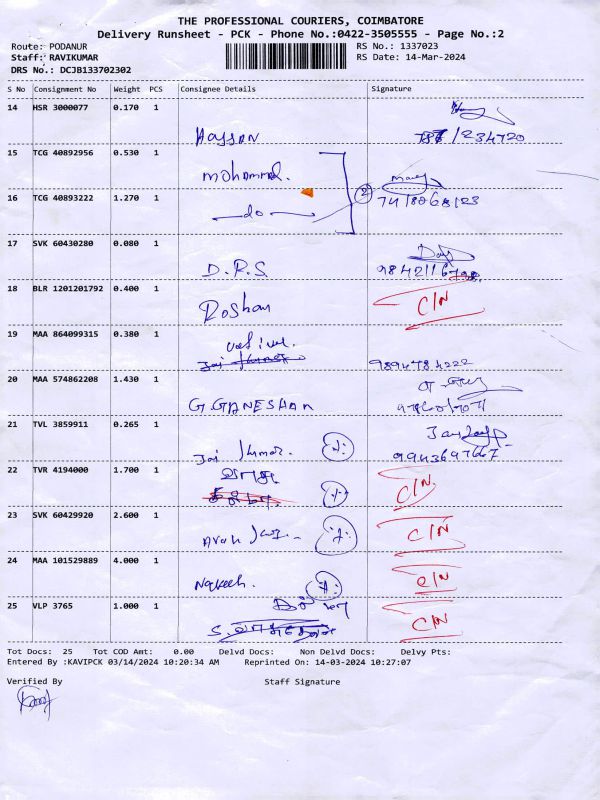 THE PROFESSIONAL COURIERS, COIMBATORE
Delivery Runsheet - PCK - Phone No.:0422-3505555 - Page No.:2
Route: PODANUR RS No.: 1337023
Staff: RAVIKUMAR RS Date: 14-Mar-2024
DRS No.: DCJB133702302
S No Consignment No Weight PCS Consignee Details Signature
14 HSR 3000077 0.170 1
HASSAN /234720
15 TCG 40892956 0.530 1
mohammed.
16 TCG 40893222 1.270 1 2
do
17 SVK 60430280 0.080 1
D.R.S
18 BLR 1201201792 0.400 1
Roshan C/N
19 MAA 864099315 0.380 1
9894784222
20 MAA 574862208 1.430 1
G.GANESHAN
21 TVL 3859911 0.265 1
Jai kumar.
22 TVR 4194000 1.700 1
C/N
23 SVK 60429920 2.600 1
C/N
24 MAA 101529889 4.000 1
C/N
25 VLP 3765 1.000 1
C/N
Tot Docs: 25 Tot COD Amt: 0.00 Delvd Docs: Non Delvd Docs: Delvy Pts:
Entered By :KAVIPCK 03/14/2024 10:20:34 AM Reprinted On: 14-03-2024 10:27:07
Verified By Staff Signature